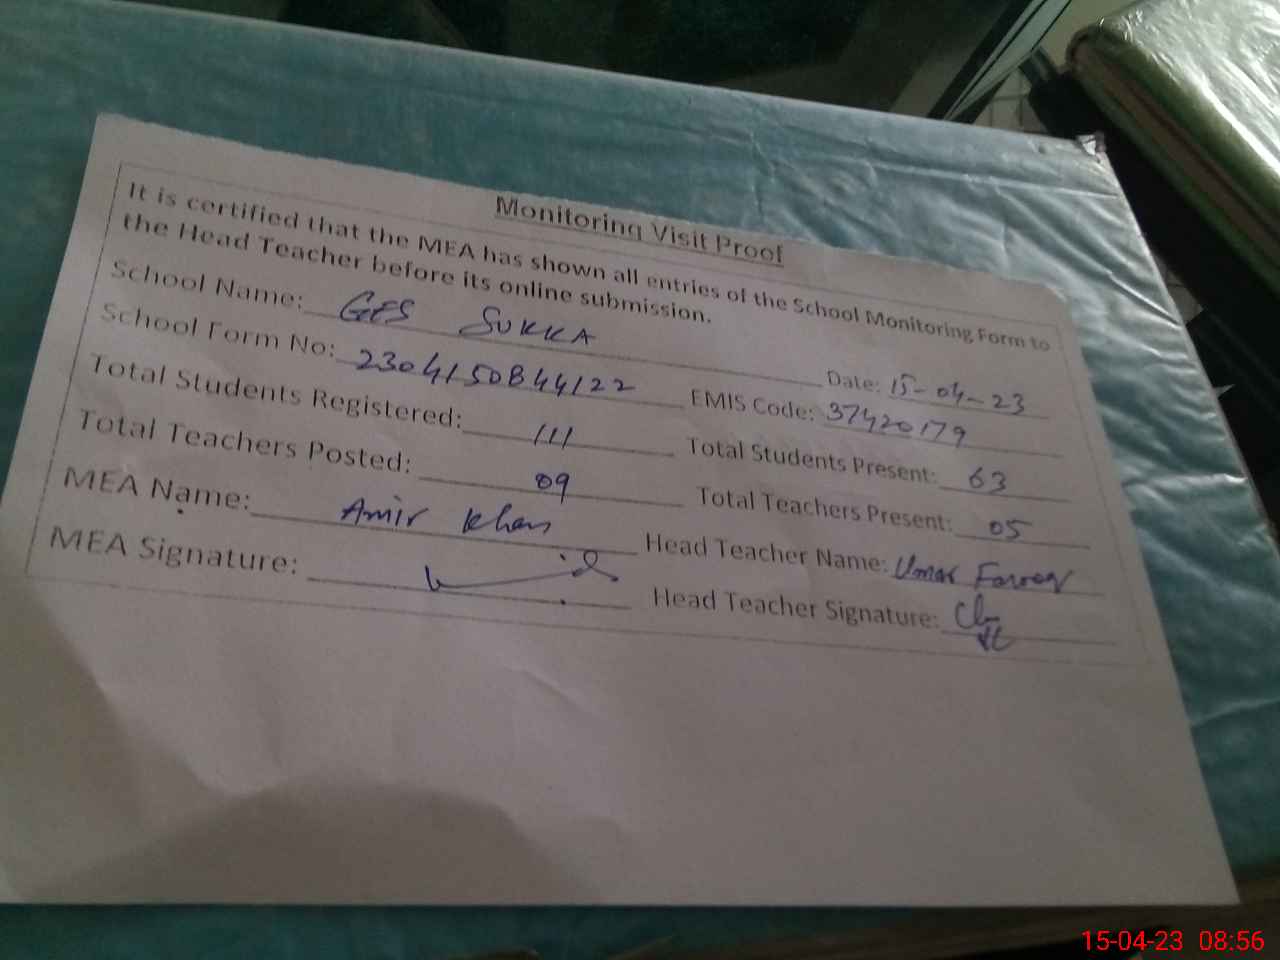 Monitoring Visit Proof
It is certified that the MEA has shown all entries of the School Monitoring Form to
the Head Teacher before its online submission.
School Name: GES SUKKA Date: 15-04-23
School Form No: 2304150844122 EMIS Code: 37420179
Total Students Registered: 111 Total Students Present: 63
Total Teachers Posted: 09 Total Teachers Present: 05
MEA Name: Amir Khan Head Teacher Name: Umar Farooq
MEA Signature: Head Teacher Signature:
15-04-23 08:56